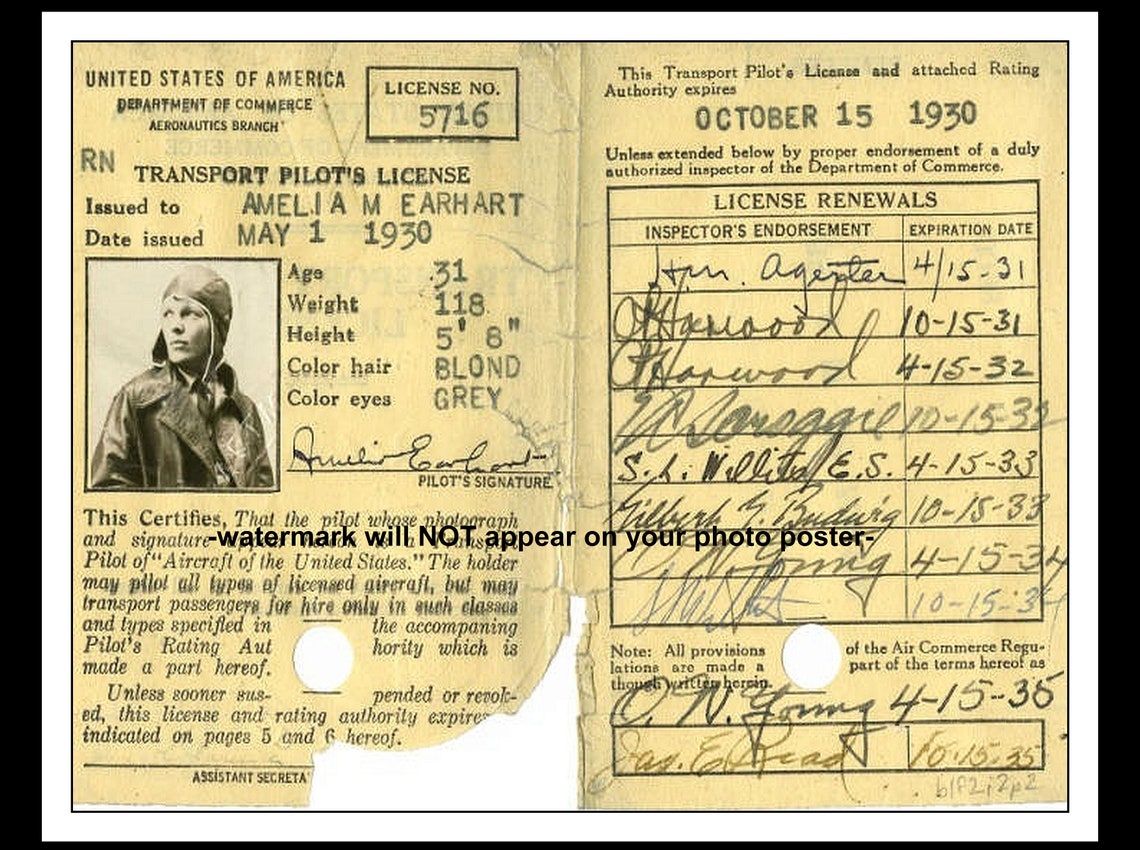 UNITED STATES OF AMERICA
DEPARTMENT OF COMMERCE
AERONAUTICS BRANCH
LICENSE NO.
5716
RN
TRANSPORT PILOT'S LICENSE
Issued to AMELIA M EARHART
Date issued MAY 1 1930
Age 31
Weight 118
Height 5' 8"
Color hair BLOND
Color eyes GREY
Amelia Earhart
PILOT'S SIGNATURE.
This Certifies, That the pilot whose photograph
and signature is a
Pilot of "Aircraft of the United States." The holder
may pilot all types of licensed aircraft, but may
transport passengers for hire only in such classes
and types specified in the accompaning
Pilot's Rating Aut hority which is
made a part hereof.
Unless sooner sus- pended or revok-
ed, this license and rating authority expires
indicated on pages 5 and 6 hereof.
ASSISTANT SECRETA
This Transport Pilot's License and attached Rating
Authority expires
OCTOBER 15 1930
Unless extended below by proper endorsement of a duly
authorized inspector of the Department of Commerce.
LICENSE RENEWALS
INSPECTOR'S ENDORSEMENT EXPIRATION DATE
4/15-31
Harwood 10-15-31
Harwood 4-15-32
10-15-32
4-15-33
Gilbert G. Budwig 10-15-33
Young 4-15-34
10-15-34
-watermark will NOT appear on your photo poster-
Note: All provisions of the Air Commerce Regu-
lations are made a part of the terms hereof as
though written herein.
O. W. Young 4-15-35
Jas. E. Read 10-15-35